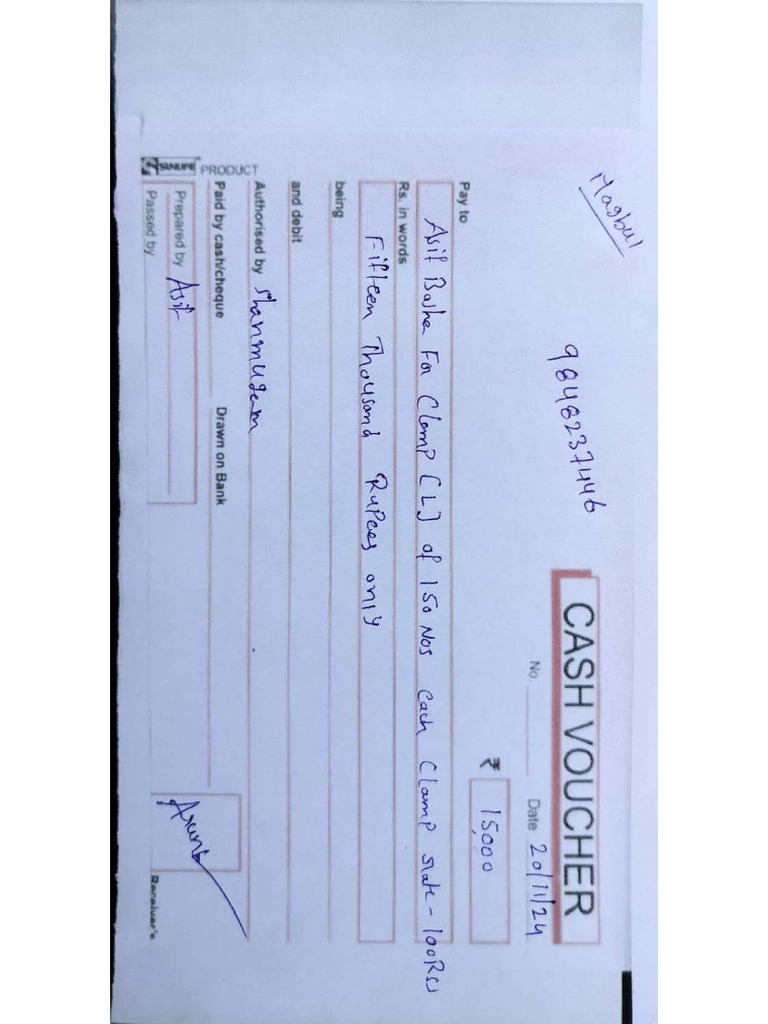 Magbul
9848237446
CASH VOUCHER
No.
Date 20/11/24
₹ 15,000
Pay to
Asif Basha For Clamp [L] of 150 Nos Each Clamp State - 100Rs
Rs. in words
Fifteen Thousand Rupees only
being
and debit
Authorised by Shanmugam
Paid by cash/cheque Drawn on Bank
Prepared by Asif
Passed by
Receiver's
SUNLIFE PRODUCT